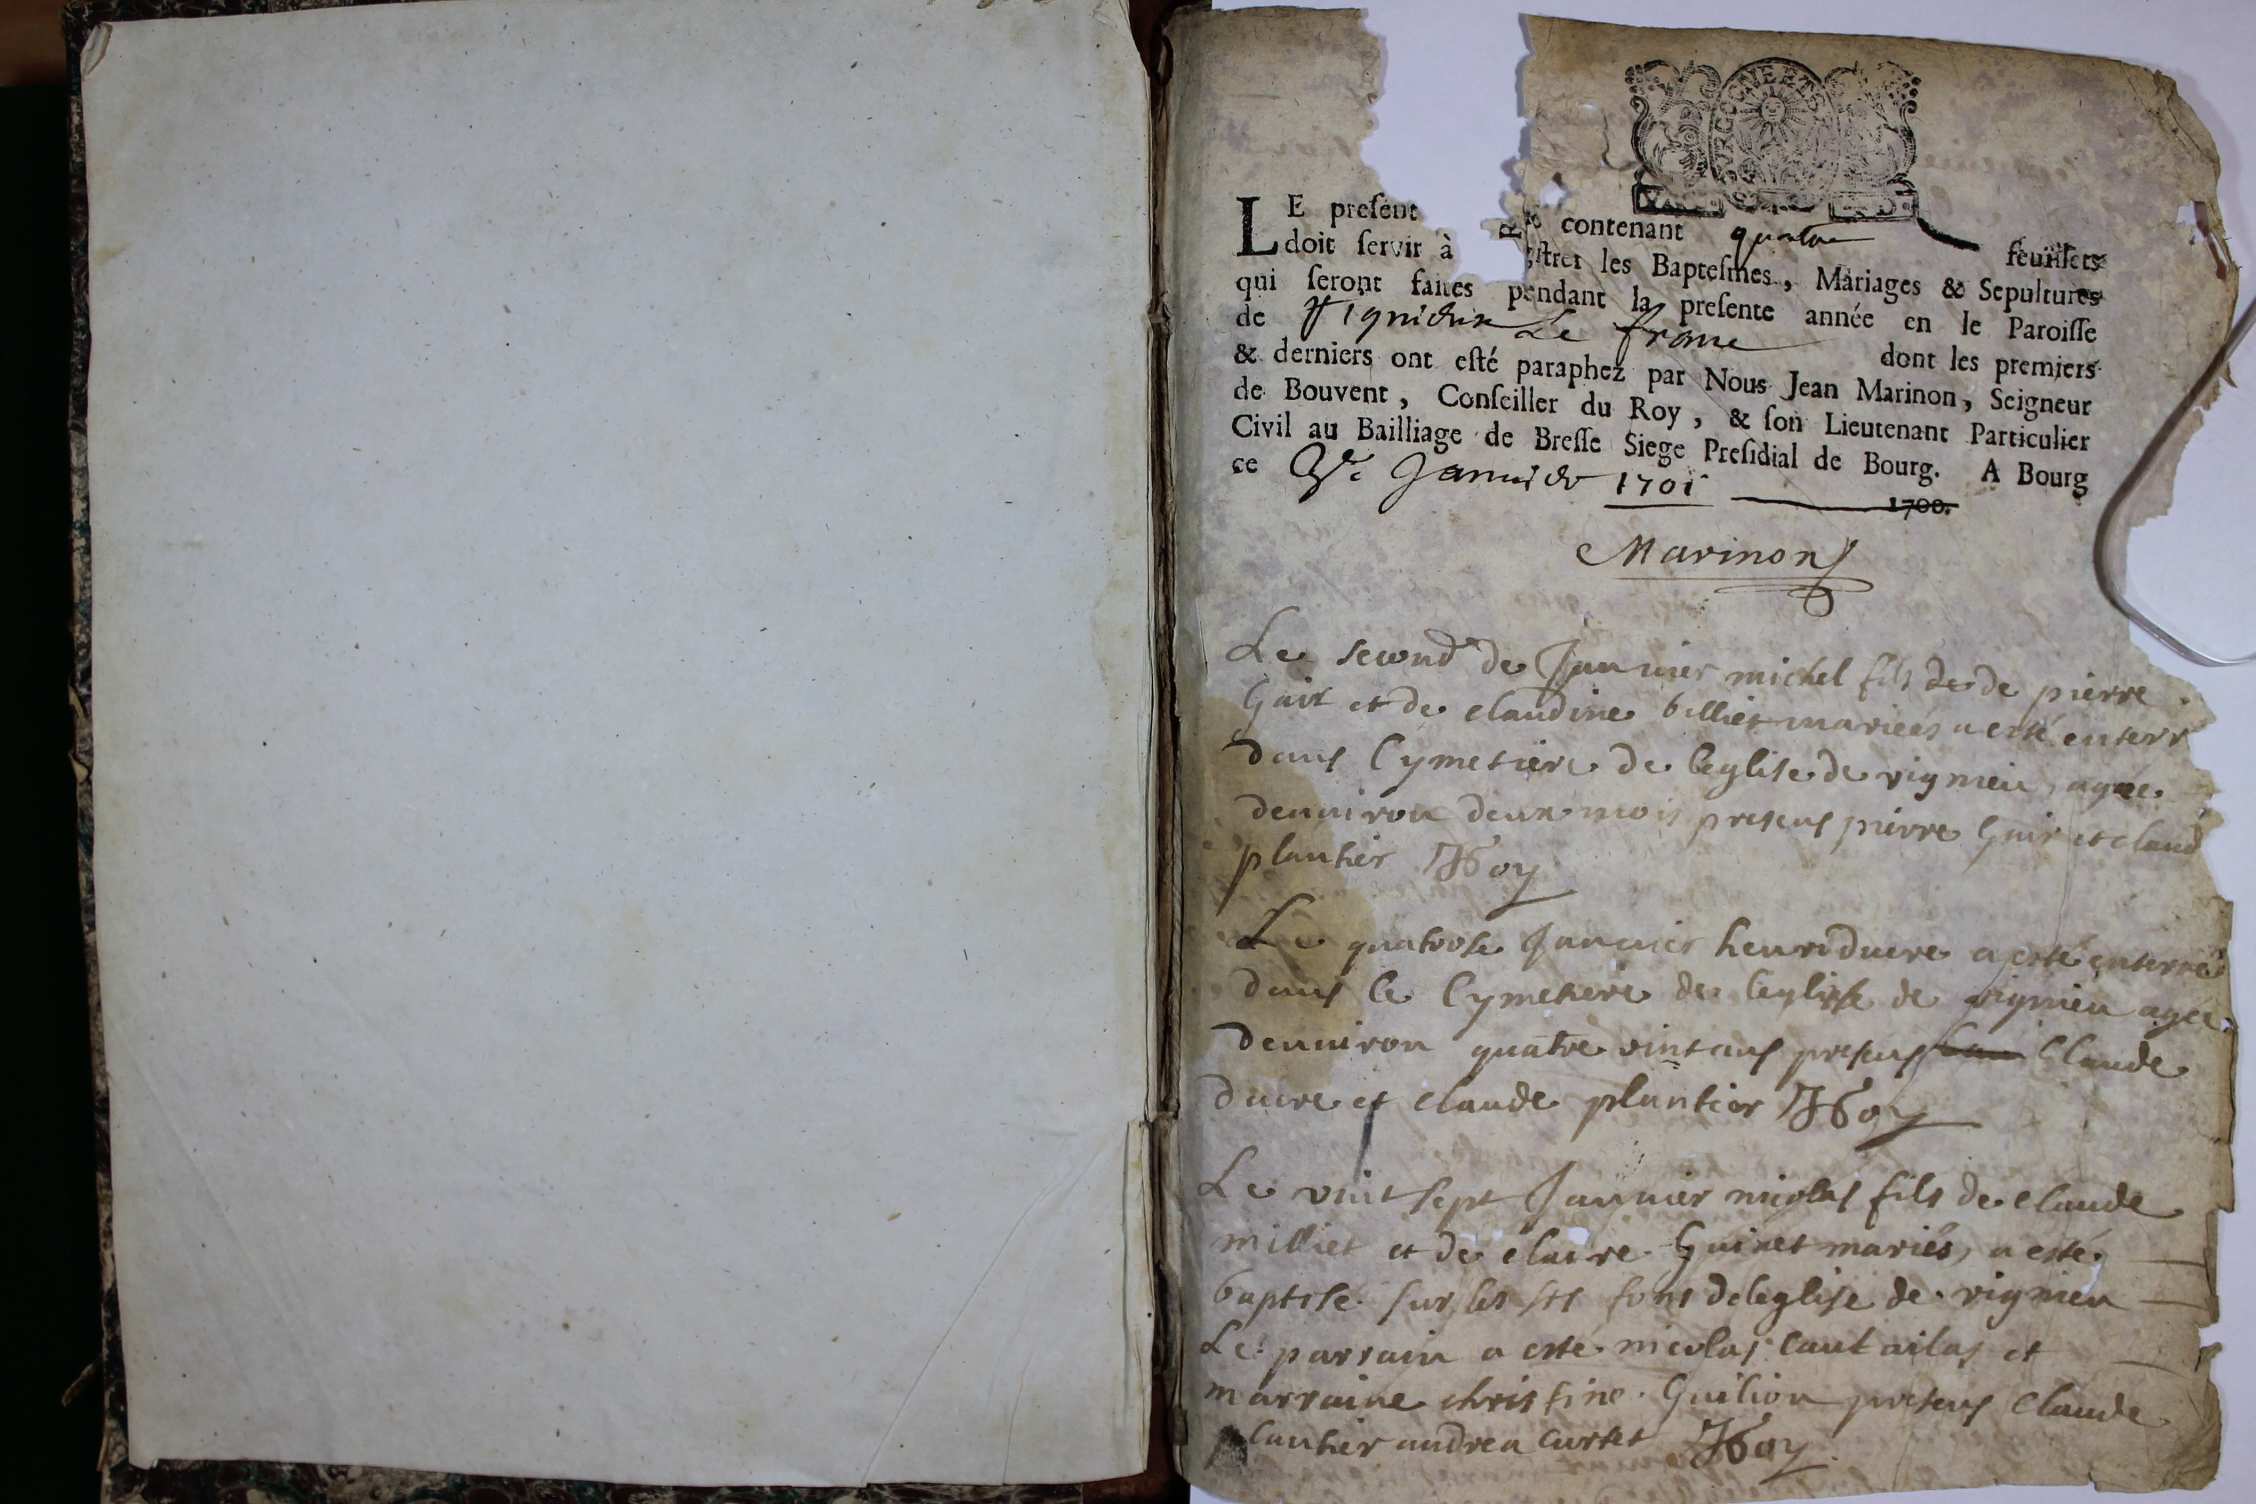 BOURGOGNE ET
LE present Re contenant quatre feuillets
doit servir à gistrer les Baptesmes, Mariages & Sepultures
qui seront faites pendant la presente année en le Paroisse
de Vignieux Le franc dont les premiers
& derniers ont esté paraphez par Nous Jean Marinon, Seigneur
de Bouvent, Conseiller du Roy, & son Lieutenant Particulier
Civil au Bailliage de Bresse Siege Presidial de Bourg. A Bourg
ce Janvier 1701 1700.
Marinon
Le second de Januier michel fils de de pierre
Guir et de claudine billiet mariées a esté enterr
dans Cymetiere de leglise de vignieu agée
denuiron deux mois presens pierre Guir et claud
plantier
Le quatorse Januier henri ducre a esté enterré
dans le Cymetiere de leglise de vignieu agée
denuiron quatre vint ans presens Claude
ducre et claude plantier
Le vint sept Januier nicolas fils de claude
milliet et de claire Guinet mariés, a esté
baptisé sur les sts fons de leglise de vignieu
Le parrain a esté nicolas et
marraine christine Guilion presens Claude
plantier andrea curtet